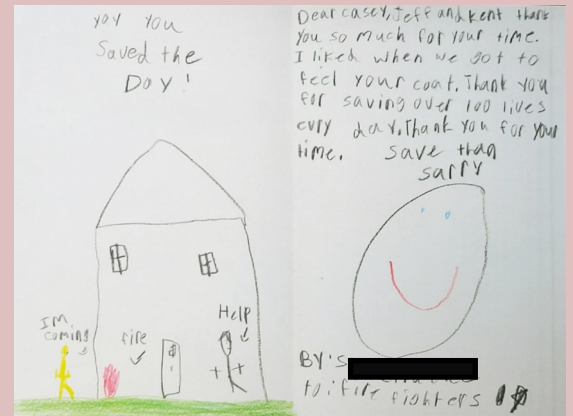 yoy you
Saved the
Doy!
IM
coming
fire
Help
Dear casey, Jeff and kent thank
you so much for your time.
I liked when we got to
feel your coat. Thank you
for saving over 100 lives
evry day. Thank you for your
time. save than
sarry
BY's
to: fire fighters